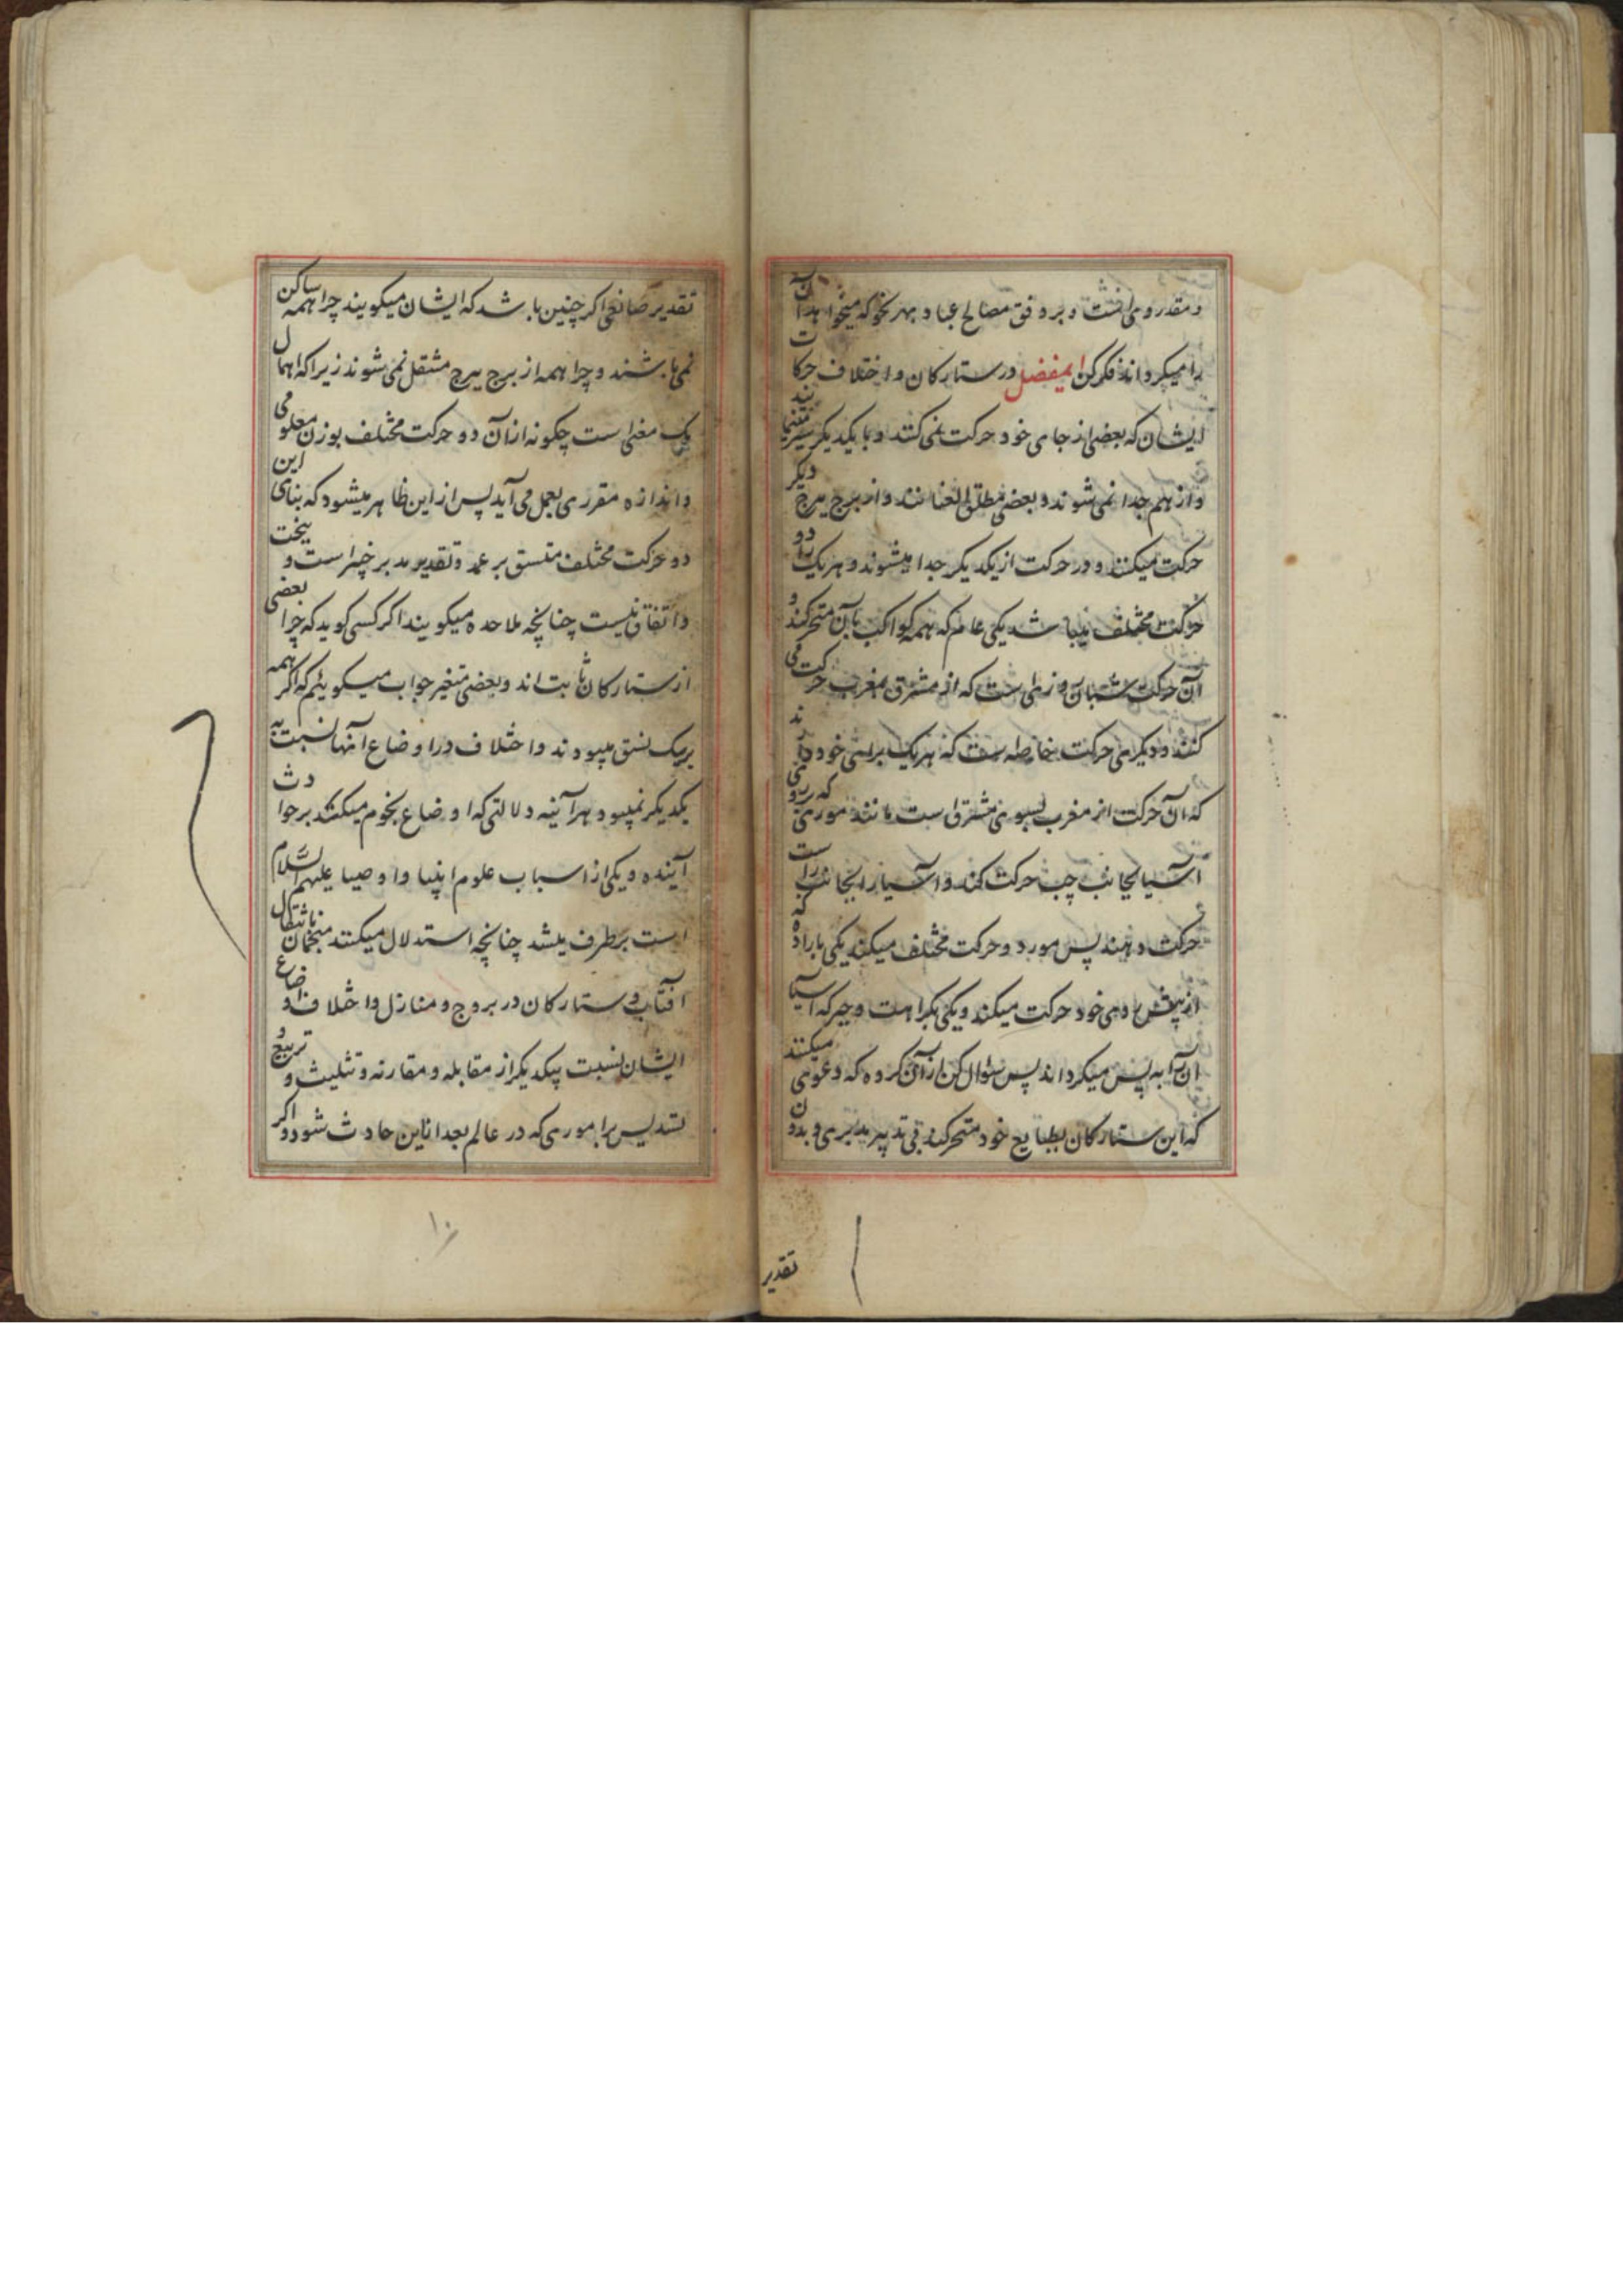 و مقدر وی افتست و بر وفق مصالح عباد و بهر نحو که میخواهد آن
را میگرداند فکر کن ایمفضل در ستارکان و اختلاف حرکات
ایشان که بعضی از جای خود حرکت نمی کنند و با یکدیکر سیر مینمایند
و از هم جدا نمی شوند و بعضی مطلق العنانند و از برج ببرج دیکر
حرکت میکنند و در حرکت از یکدیکر جدا میشوند و هر یک را دو
حرکت مختلف میباشد یکی عام که همه کواکب بآن متحرکند و
آن حرکت شبان روزی است که از مشرق بمغرب حرکت می
کنند و دیکری حرکت خاصه است که هر یک برای خود دارند
که آن حرکت از مغرب بسوی مشرق است مانند موری که بر روی
آسیا بجانب چپ حرکت کند و آسیا را بجانب راست
حرکت دهند پس مور دو حرکت مختلف میکند یکی باراده که
از پیش روی خود حرکت میکند و یکی بکراهت و جبر که آسیا
آن را به پس میکرداند پس سؤال کن از آن کروه که دعوی میکنند
که این ستارکان بطبایع خود متحرکند بی تدبیر مدبری و بدون
تقدیر
تقدیر صانعی اکر چنین باشد که ایشان میکویند چرا همه ساکن
نمی باشند و چرا همه از برج ببرج منتقل نمی شوند زیرا که اهمال
یک معنی است چکونه از آن دو حرکت مختلف بوزن معلومی
و اندازه مقرری بعمل می آید پس از این ظاهر میشود که بنای این
دو حرکت مختلف متسق بر عمد و تقدیر مدبر خبیر است و ببخت
و اتفاق نیست چنانچه ملاحده میکویند اکر کسی کوید که چرا بعضی
از ستارکان ثابت اند و بعضی متغیر جواب میکوئیم که اکر همه
بریک نسق میبودند و اختلاف در اوضاع آنها نسبت به
یکدیکر نمیبود هر آینه دلالتی که اوضاع نجوم میکنند بر حوادث
آینده و یکی از اسباب علوم انبیا و اوصیا علیهم السلام
است برطرف میشد چنانچه استدلال میکنند منجمان بانتقال
آفتاب و ستارکان در بروج و منازل و اختلاف اوضاع
ایشان نسبت بیکدیکر از مقابله و مقارنه و تثلیث و تربیع و
تسدیس بر اموری که در عالم بعد از این حادث شود و اکر
۱۰